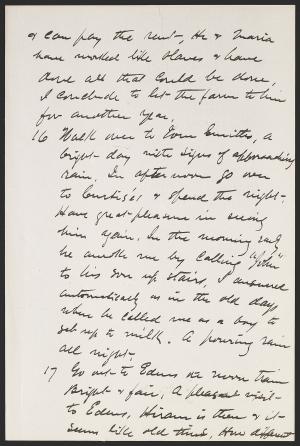 & can pay the rent, He & Maria
have worked like slaves & have
done all that could be done,
I conclude to let the farm to him
for another year.
16 Walk over to Tom Smiths, a
bright day with signs of approaching
rain. In after noon go over
to Curtis'es & spend the night.
Have great pleasure in seeing
him again. In the morning early
he awoke me by calling "John"
to his son up stairs, I answered
automatically as in the old days
when he called me as a boy to
get up to milk. A pouring rain
all night.
17 Go out to Edens on noon train
Bright & fair, A pleasant visit
to Edens, Hiram is there & it
seems like old times, How different